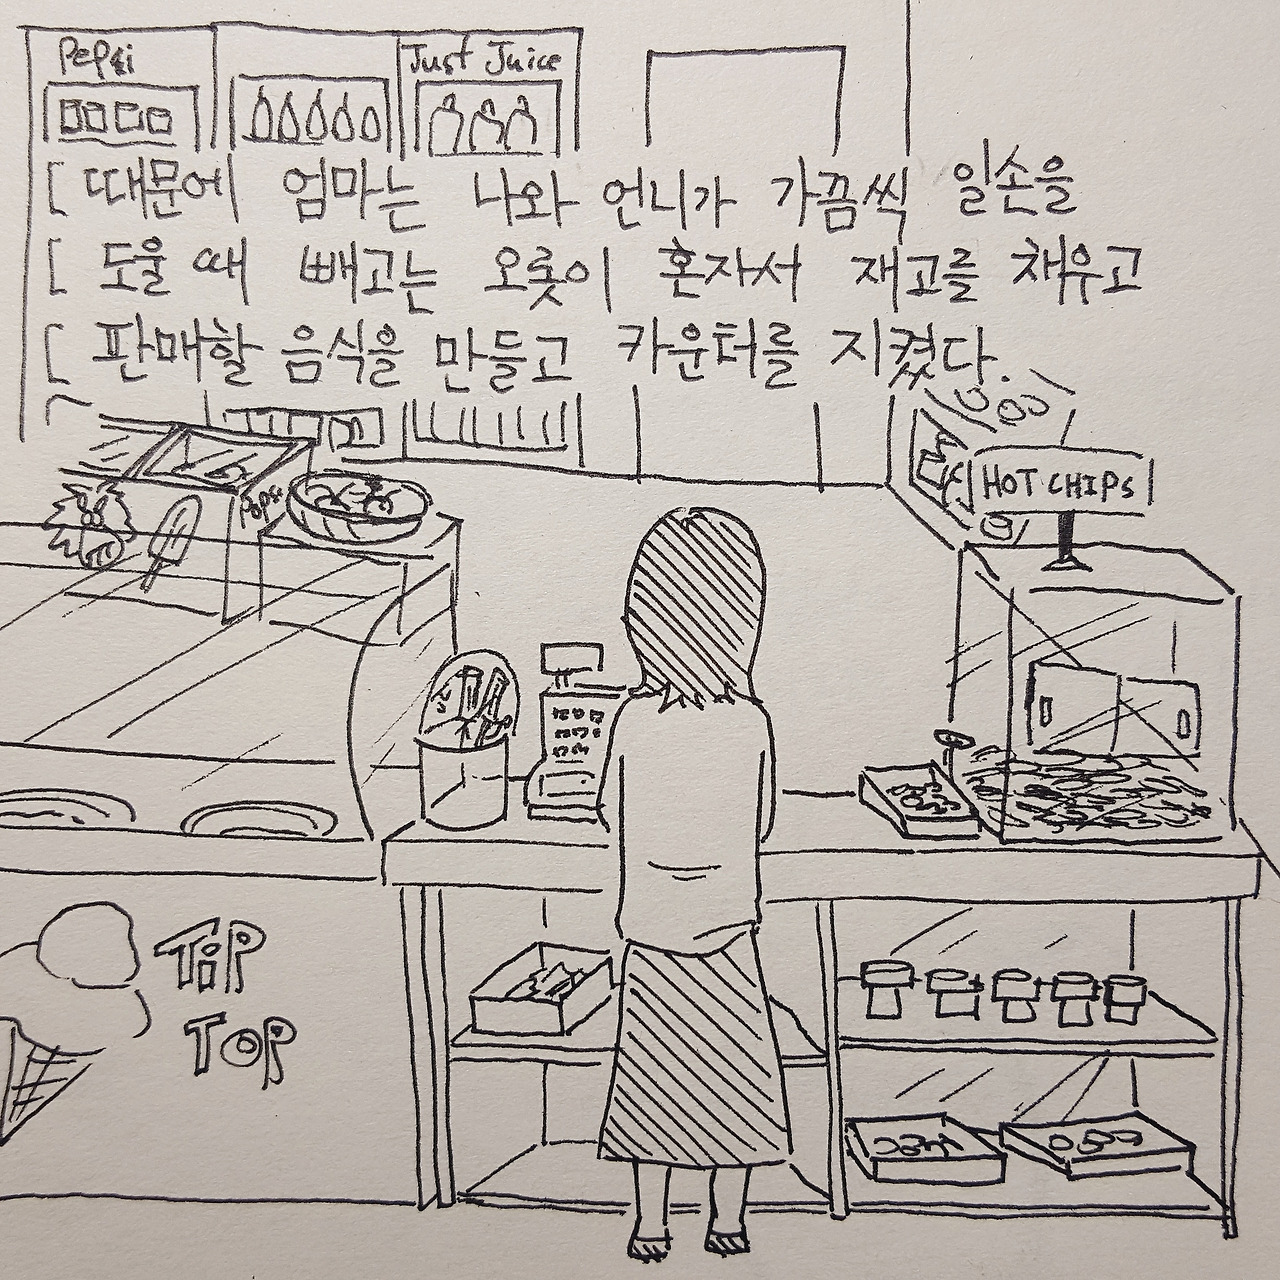 Pepsi
Just Juice
때문에 엄마는 나와 언니가 가끔씩 일손을
도울 때 빼고는 오롯이 혼자서 재고를 채우고
판매할 음식을 만들고 카운터를 지켰다.
HOT CHIPS
Pops
TIP
TOP